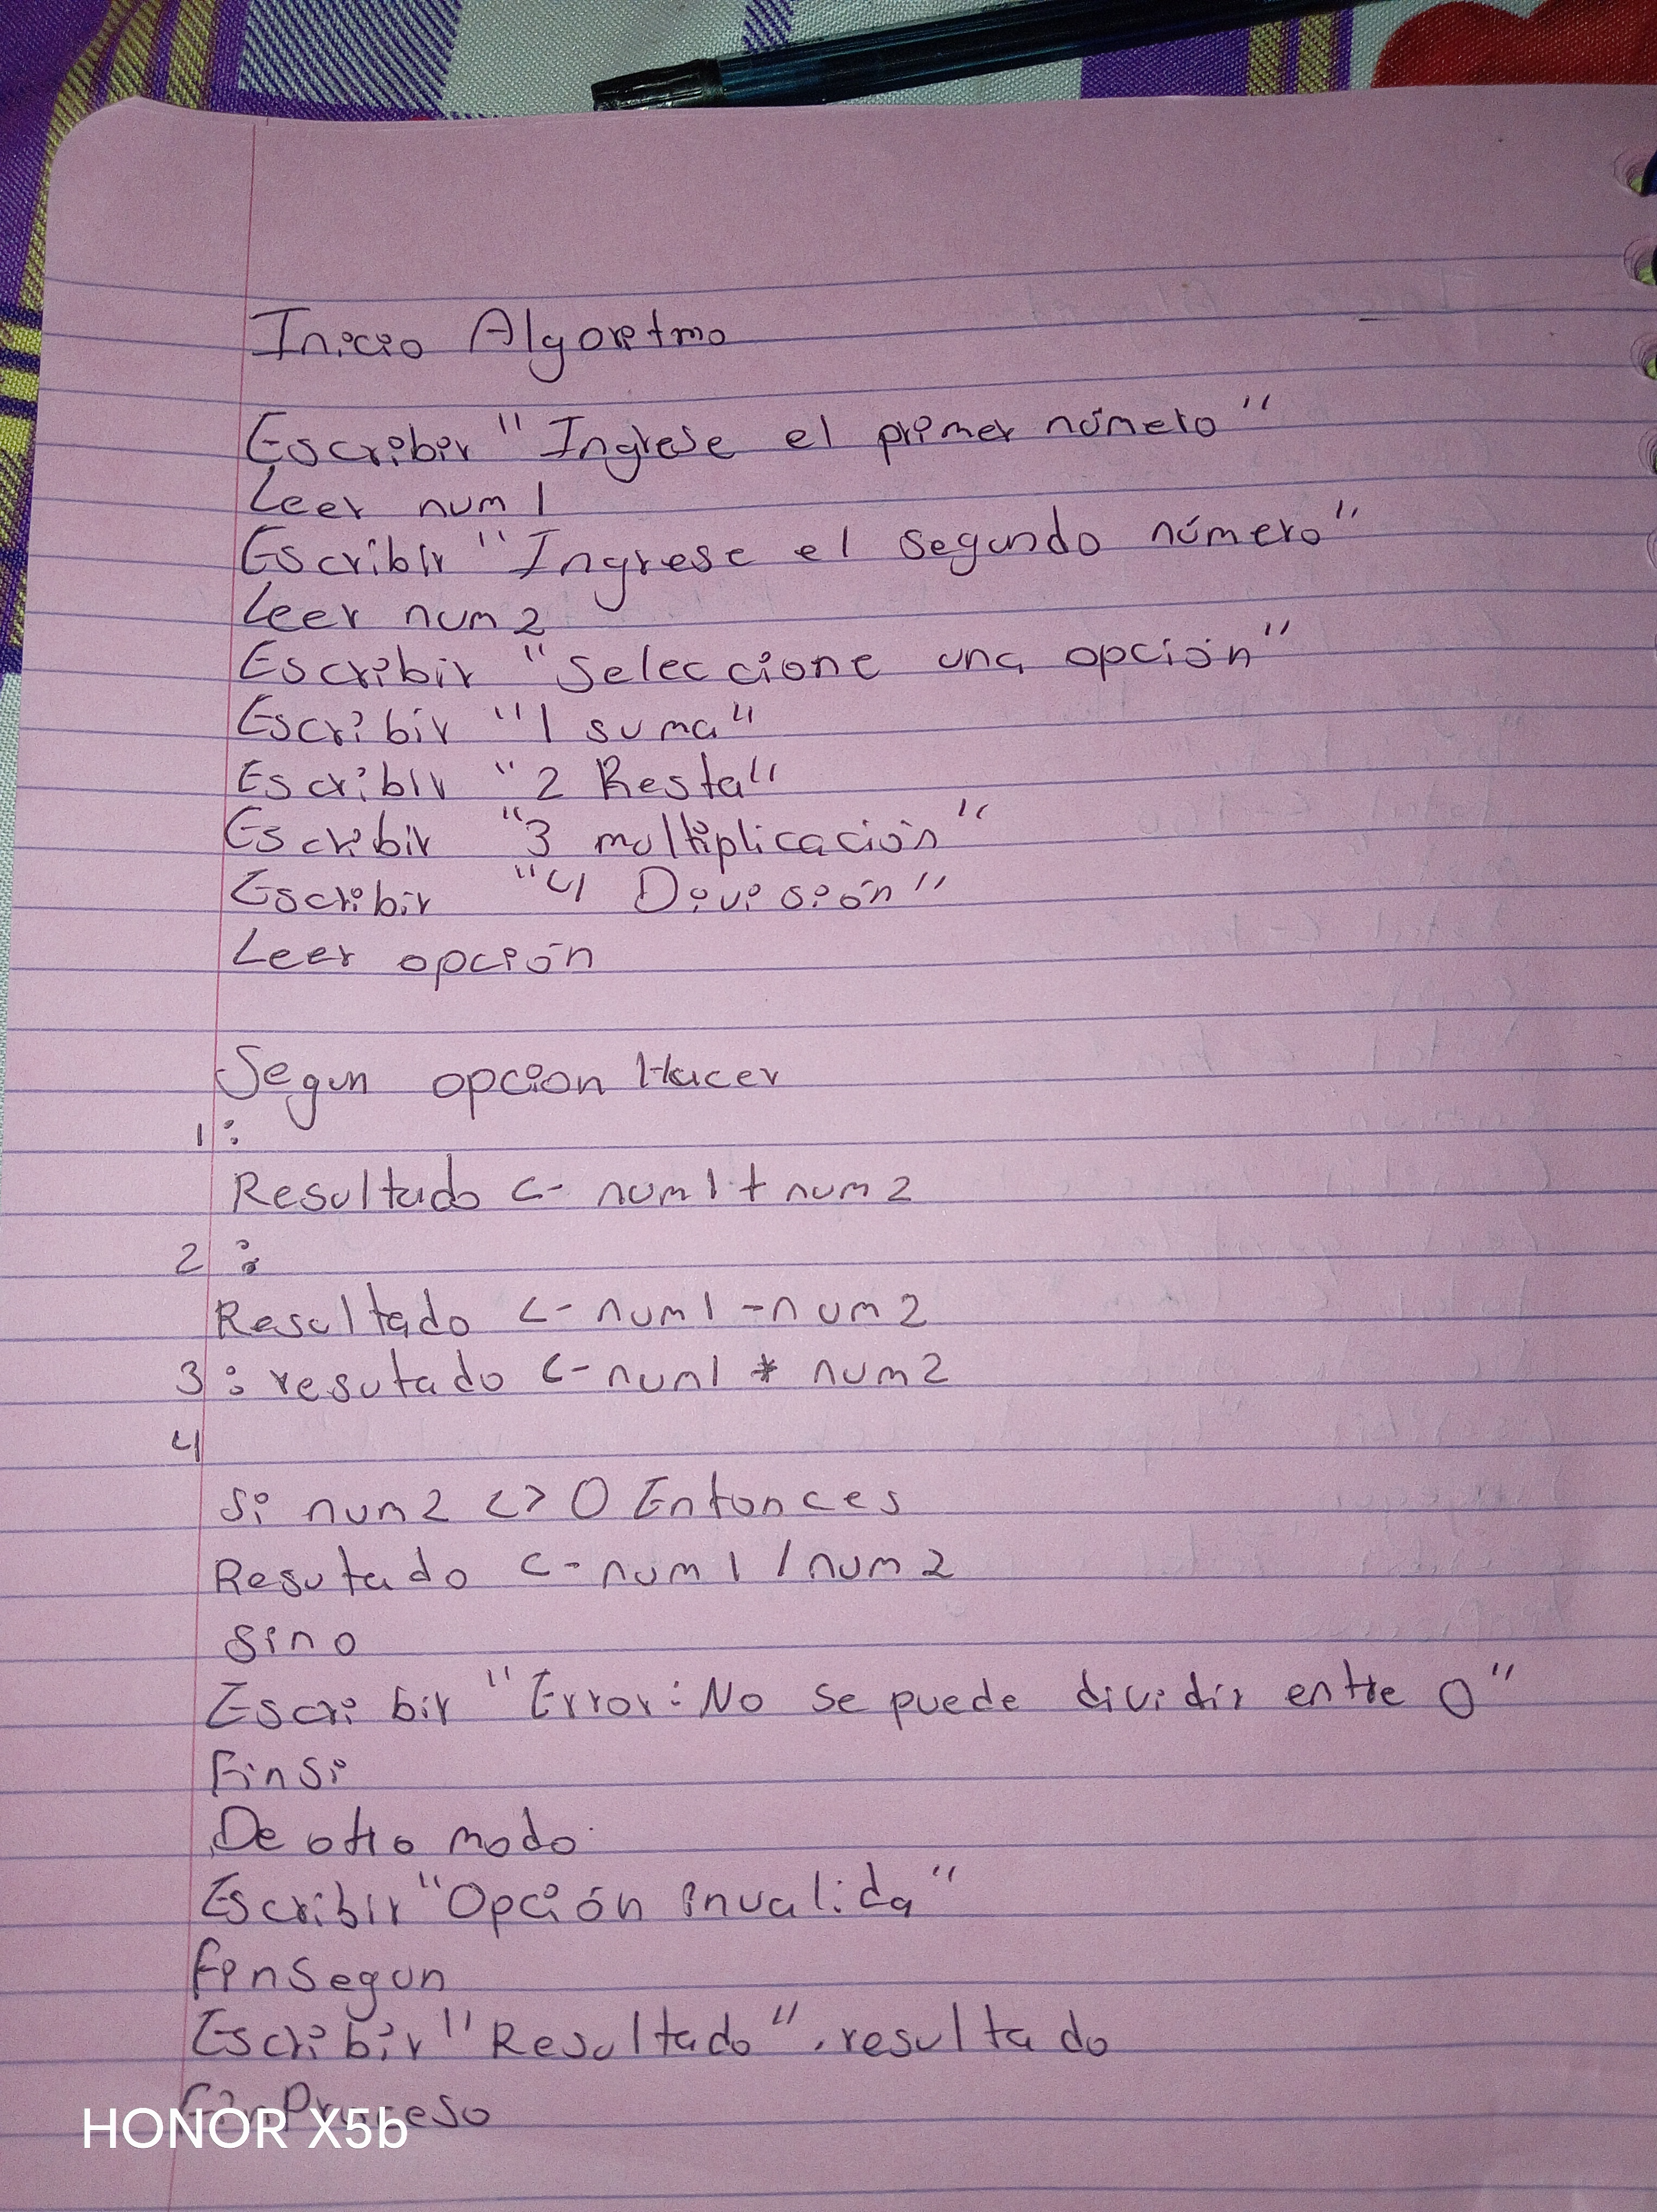 Inicio Algoretmo
Escribir "Ingrese el primer número"
Leer num1
Escribir "Ingrese el segundo número"
Leer num2
Escribir "Seleccione una opción"
Escribir "1 suma"
Escribir "2 Resta"
Escribir "3 multiplicación"
Escribir "4 División"
Leer opción
Segun opcion Hacer
1:
Resultado <- num1 + num2
2:
Resultado <- num1 - num2
3: resutado <- num1 * num2
4
Si num2 <> 0 Entonces
Resutado <- num1 / num2
Sino
Escribir "Error: No se puede dividir entre 0"
Finsi
De otro modo
Escribir "Opción invalida"
finsegun
Escribir "Resultado", resultado
FinProceso
HONOR X5b